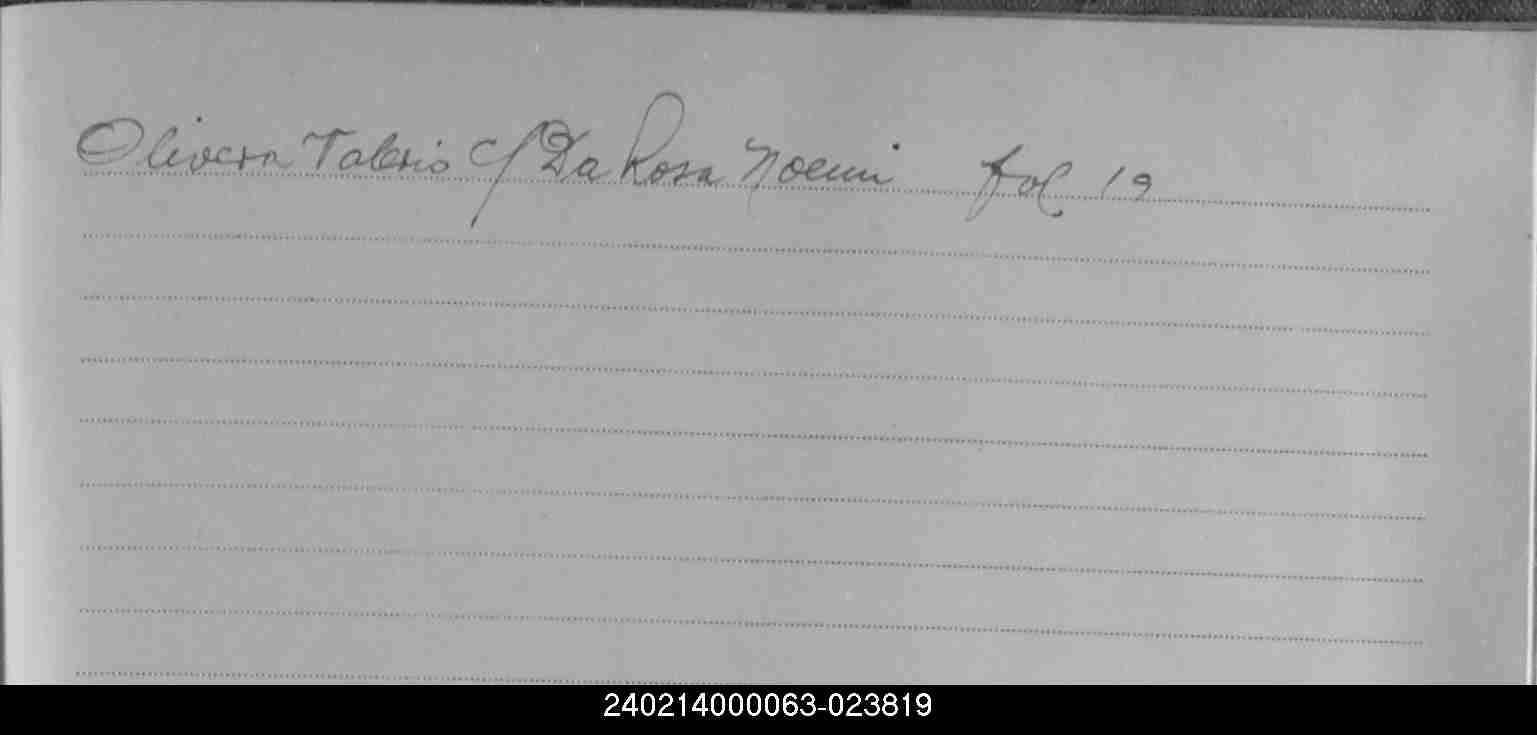 Olivera Taberio c/ Da Rosa Noemi fol 19
240214000063-023819